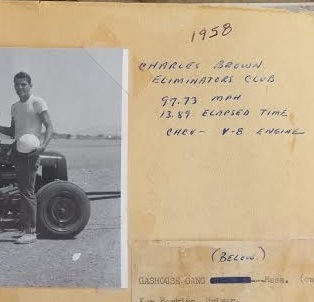 1958
CHARLES BROWN
ELIMINATORS CLUB
97.73 MPH
13.89 ELAPSED TIME
CHEV- V-8 ENGINE
(BELOW)
GASHOUSE GANG
Driver.